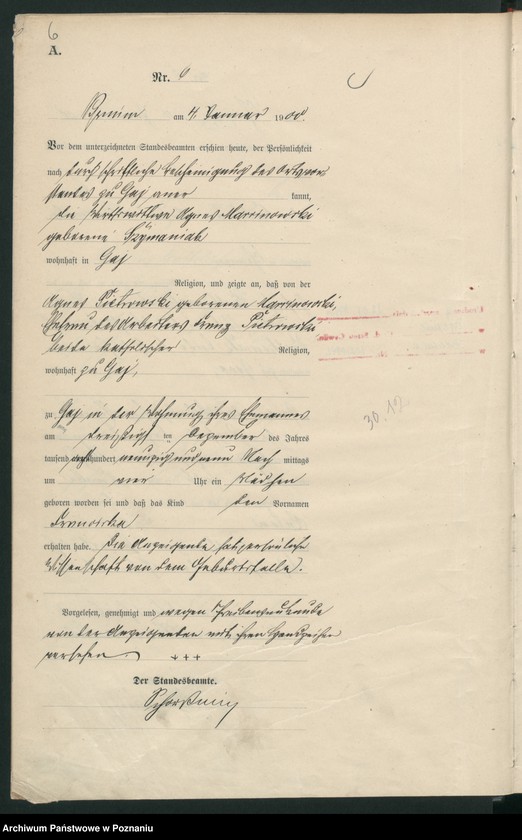 6
A.
Nr. 6
Bnin am 4. Januar 1900.
Vor dem unterzeichneten Standesbeamten erschien heute, der Persönlichkeit
nach durch schriftliche Bescheinigung des Ortsvor
standes zu Gaj aner kannt,
die Wirtswittwe Agnes Marcinowski
geborene Szymaniak
wohnhaft in Gaj
Religion, und zeigte an, daß von der
Agnes Piotrowski geborenen Marcinowski,
Ehefrau des Arbeiters Franz Piotrowski
beide katholischer Religion,
wohnhaft zu Gaj,
zu Gaj in der Wohnung ihres Ehemannes
am dreißigsten Dezember des Jahres
tausend achthundert neunzig und neun Nach mittags
um vier Uhr ein Mädchen
geboren worden sei und daß das Kind den Vornamen
Franciska
erhalten habe. Die Anzeigende hat persönliche
Wissenschaft von dem Geburtsfalle.
Vorgelesen, genehmigt und wegen Schreibensunkunde
von der Anzeigenden mit ihren Handzeichen
versehen. +++
Der Standesbeamte.
30.12.
Archiwum Państwowe w Poznaniu